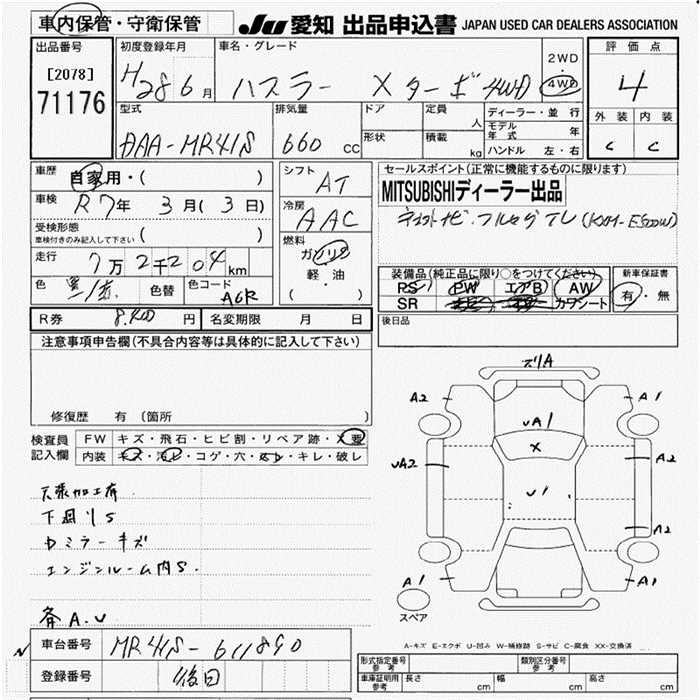 車内保管・守衛保管
JU 愛知 出品申込書 JAPAN USED CAR DEALERS ASSOCIATION
出品番号 初度登録年月 車名・グレード 2WD ・ 4WD 評価点
[2078] 71176 H28 6月 ハスラー Xターボ 4WD 4
型式 排気量 ドア 定員 人 ディーラー・並行 外装 内装
DAA-MR41S 660 CC 形状 積載 kg モデル年式 年 ハンドル 左・右 C C
車歴 自家用・( ) シフト AT セールスポイント(正常に機能するものに限ります)
車検 R7年 3月(3日) 冷房 AAC MITSUBISHIディーラー出品
受検形態 車検付きのみ記入して下さい ( )
燃料 ガソリン 軽・油 ・( )
走行 7万2千204km 装備品(純正品に限り○をつけてください) 新車保証書
色 黒/赤 色替 色コード A6R PS PW エアB AW 有・無
SR カワシート
R券 8,400円 名変期限 月 日 後日品
注意事項申告欄(不具合内容等は具体的に記入して下さい)
修復歴 有(箇所
検査員 記入欄 FW キズ・飛石・ヒビ割・リペア跡・X要
内装 キズ・汚レ・コゲ・穴・・キレ・破レ
下廻りS
ドミラーキズ
エンジンルーム内S.
各A.U
ズリA
A2 A1
UA1
X
UA2 A2
U1
A2
A1 A1
スペア
A-キズ E-エクボ U-凹み W-補修跡 S-サビ C-腐食 XX-交換済
N 車台番号 MR41S-611890
登録番号 後日
形式指定番号 参考 類別区分番号 参考
車庫証明用 参考 長さ cm 幅 cm 高さ cm